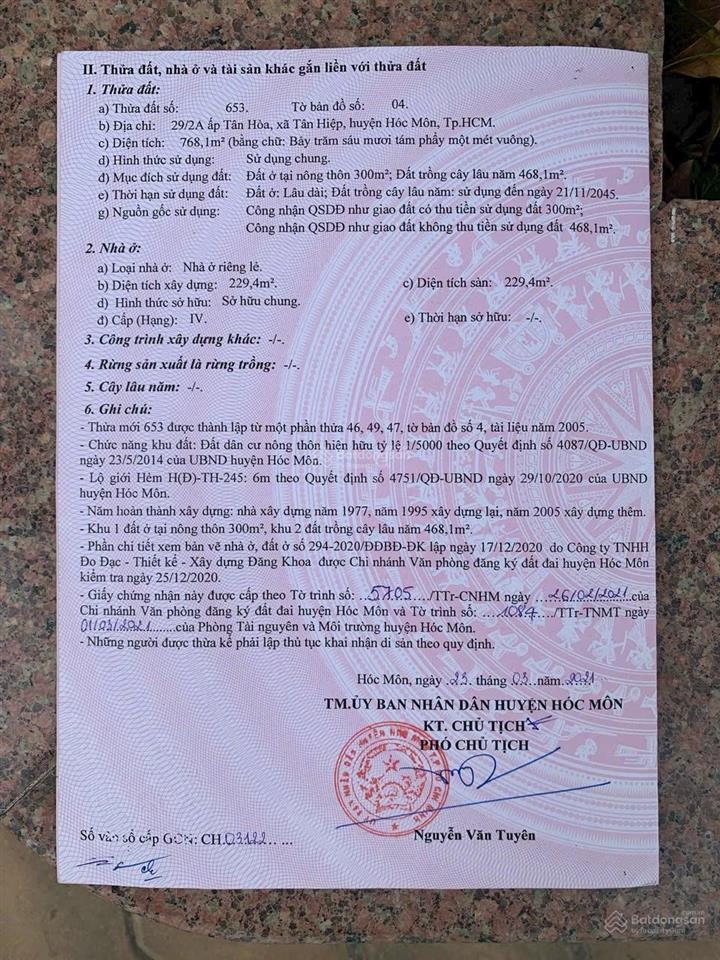 II. Thửa đất, nhà ở và tài sản khác gắn liền với thửa đất
1. Thửa đất:
a) Thửa đất số: 653. Tờ bản đồ số: 04.
b) Địa chỉ: 29/2A ấp Tân Hòa, xã Tân Hiệp, huyện Hóc Môn, Tp.HCM.
c) Diện tích: 768,1m² (bằng chữ: Bảy trăm sáu mươi tám phẩy một mét vuông).
d) Hình thức sử dụng: Sử dụng chung.
đ) Mục đích sử dụng đất: Đất ở tại nông thôn 300m²; Đất trồng cây lâu năm 468,1m².
e) Thời hạn sử dụng đất: Đất ở: Lâu dài; Đất trồng cây lâu năm: sử dụng đến ngày 21/11/2045.
g) Nguồn gốc sử dụng: Công nhận QSDĐ như giao đất có thu tiền sử dụng đất 300m²;
Công nhận QSDĐ như giao đất không thu tiền sử dụng đất 468,1m².
2. Nhà ở:
a) Loại nhà ở: Nhà ở riêng lẻ.
b) Diện tích xây dựng: 229,4m². c) Diện tích sàn: 229,4m².
d) Hình thức sở hữu: Sở hữu chung.
đ) Cấp (Hạng): IV. e) Thời hạn sở hữu: -/-.
3. Công trình xây dựng khác: -/-.
4. Rừng sản xuất là rừng trồng: -/-.
5. Cây lâu năm: -/-.
6. Ghi chú:
- Thửa mới 653 được thành lập từ một phần thửa 46, 49, 47, tờ bản đồ số 4, tài liệu năm 2005.
- Chức năng khu đất: Đất dân cư nông thôn hiện hữu tỷ lệ 1/5000 theo Quyết định số 4087/QĐ-UBND
ngày 23/5/2014 của UBND huyện Hóc Môn.
- Lộ giới Hẻm H(Đ)-TH-245: 6m theo Quyết định số 4751/QĐ-UBND ngày 29/10/2020 của UBND
huyện Hóc Môn.
- Năm hoàn thành xây dựng: nhà xây dựng năm 1977, năm 1995 xây dựng lại, năm 2005 xây dựng thêm.
- Khu 1 đất ở tại nông thôn 300m², khu 2 đất trồng cây lâu năm 468,1m².
- Phần chi tiết xem bản vẽ nhà ở, đất ở số 294-2020/ĐĐBĐ-ĐK lập ngày 17/12/2020 do Công ty TNHH
Đo Đạc - Thiết kế - Xây dựng Đăng Khoa được Chi nhánh Văn phòng đăng ký đất đai huyện Hóc Môn
kiểm tra ngày 25/12/2020.
- Giấy chứng nhận này được cấp theo Tờ trình số: 5705/TTr-CNHM ngày 26/02/2021 của
Chi nhánh Văn phòng đăng ký đất đai huyện Hóc Môn và Tờ trình số: 1084/TTr-TNMT ngày
01/03/2021 của Phòng Tài nguyên và Môi trường huyện Hóc Môn.
- Những người được thừa kế phải lập thủ tục khai nhận di sản theo quy định.
Hóc Môn, ngày 23 tháng 03 năm 2021
TM.ỦY BAN NHÂN DÂN HUYỆN HÓC MÔN
KT. CHỦ TỊCH
PHÓ CHỦ TỊCH
Nguyễn Văn Tuyên
Số vào sổ cấp GCN: CH.03122
Batdongsan